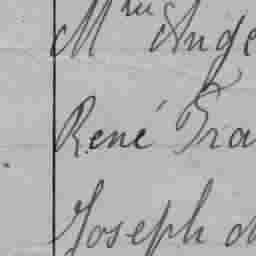 Mme Ange
René Fra
Joseph d